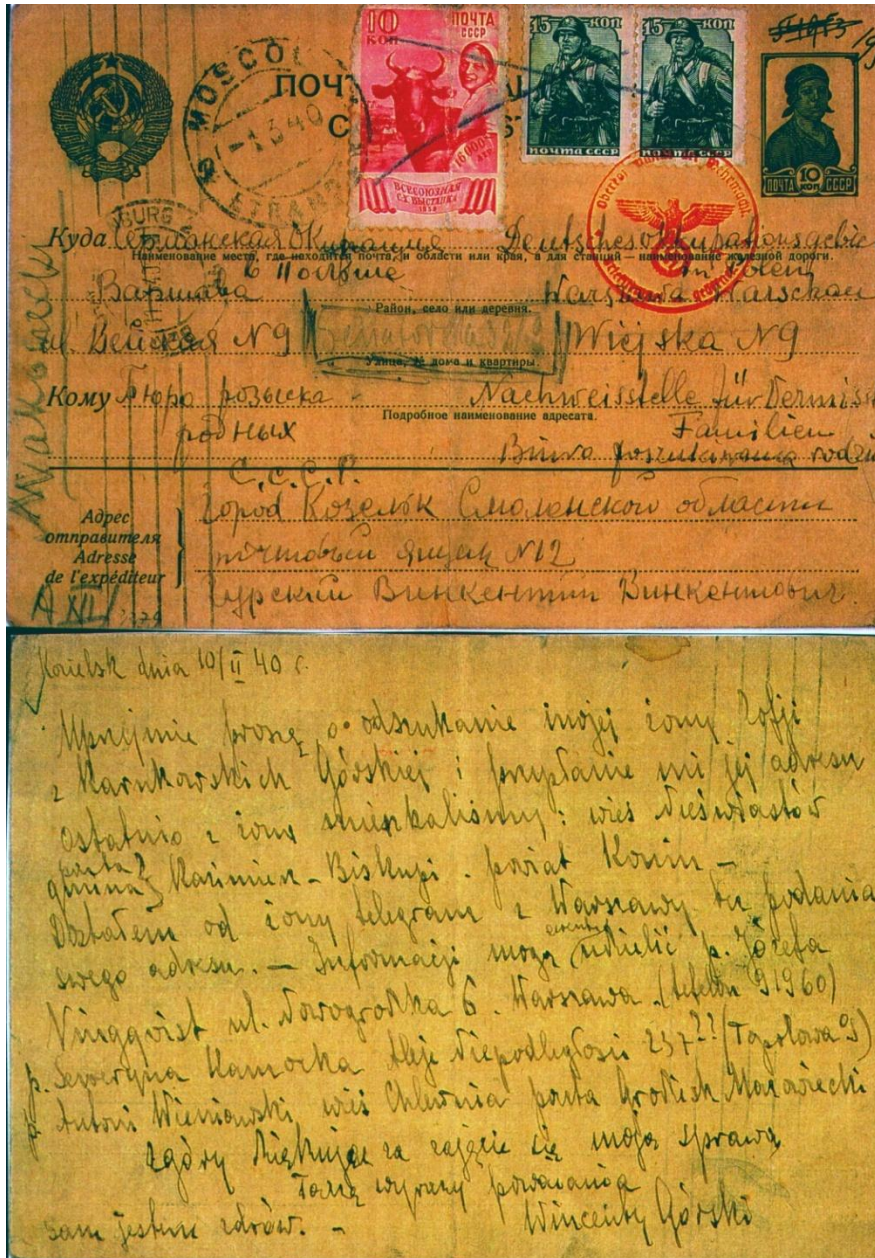 10 КОП
ПОЧТА СССР
16.000 ЛИТР
ВСЕСОЮЗНАЯ
С.Х. ВЫСТАВКА
15 КОП
ПОЧТА СССР
15 КОП
ПОЧТА СССР
10 КОП
ПОЧТА СССР
MOSCOU
1 3 40
ПОЧТ
Куда Германская Окупация Deutsches Okkupationsgebie
Наименование места, где находится почта, и области или края, а для станций — наименование железной дороги.
в Польше in Polen
Варшава Warszawa Warschau
Район, село или деревня.
ул. Вейская N9 Wiejska N9
Улица, № дома и квартиры.
Кому Бюро розыска - Nachweisstelle für Vermis
Подробное наименование адресата.
родных Familien
Biuro poszukiwania rodzi
С.С.С.Р.
Адрес
отправителя
Adresse
de l'expéditeur
Город Козельк Смоленской области
почтовый ящик N12
Гурский Винкентий Винкентович.
A XII
Kozielsk dnia 10/II 40 r.
Uprzejmie proszę o odszukanie mojej żony Zofji
z Karnkowskich Górskiej i przysłanie mi jej adresu
ostatnio z żoną mieszkaliśmy: wieś Nieświastów
poczta
gmina } Kazimierz - Biskupi. powiat Konin -
Dostałem od żony telegram z Warszawy bez podania
swego adresu. - Informacji mogą udzielić p. Józefa
ul. Nowogrodzka 6. Warszawa. (telefon 91960)
p. Seweryna Kamocka Aleje Niepodległości 237?? (Topolowa
p. Antoni Wieniawski wieś Chlewnia poczta Grodzisk Mazowiecki
zgóry dziękując za zajęcie się moją sprawą
łączę wyrazy poważania
sam jestem zdrów. - Wincenty Górski